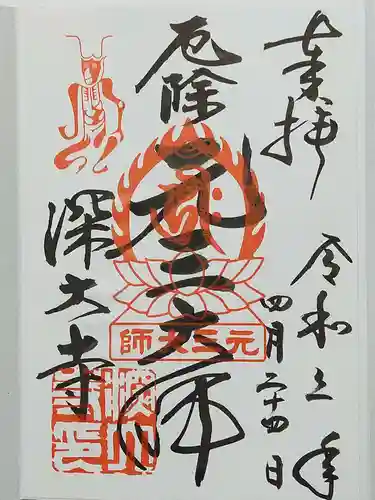 奉拝
令和三年
四月二十四日
厄除
元三大師
元三大師
深大寺